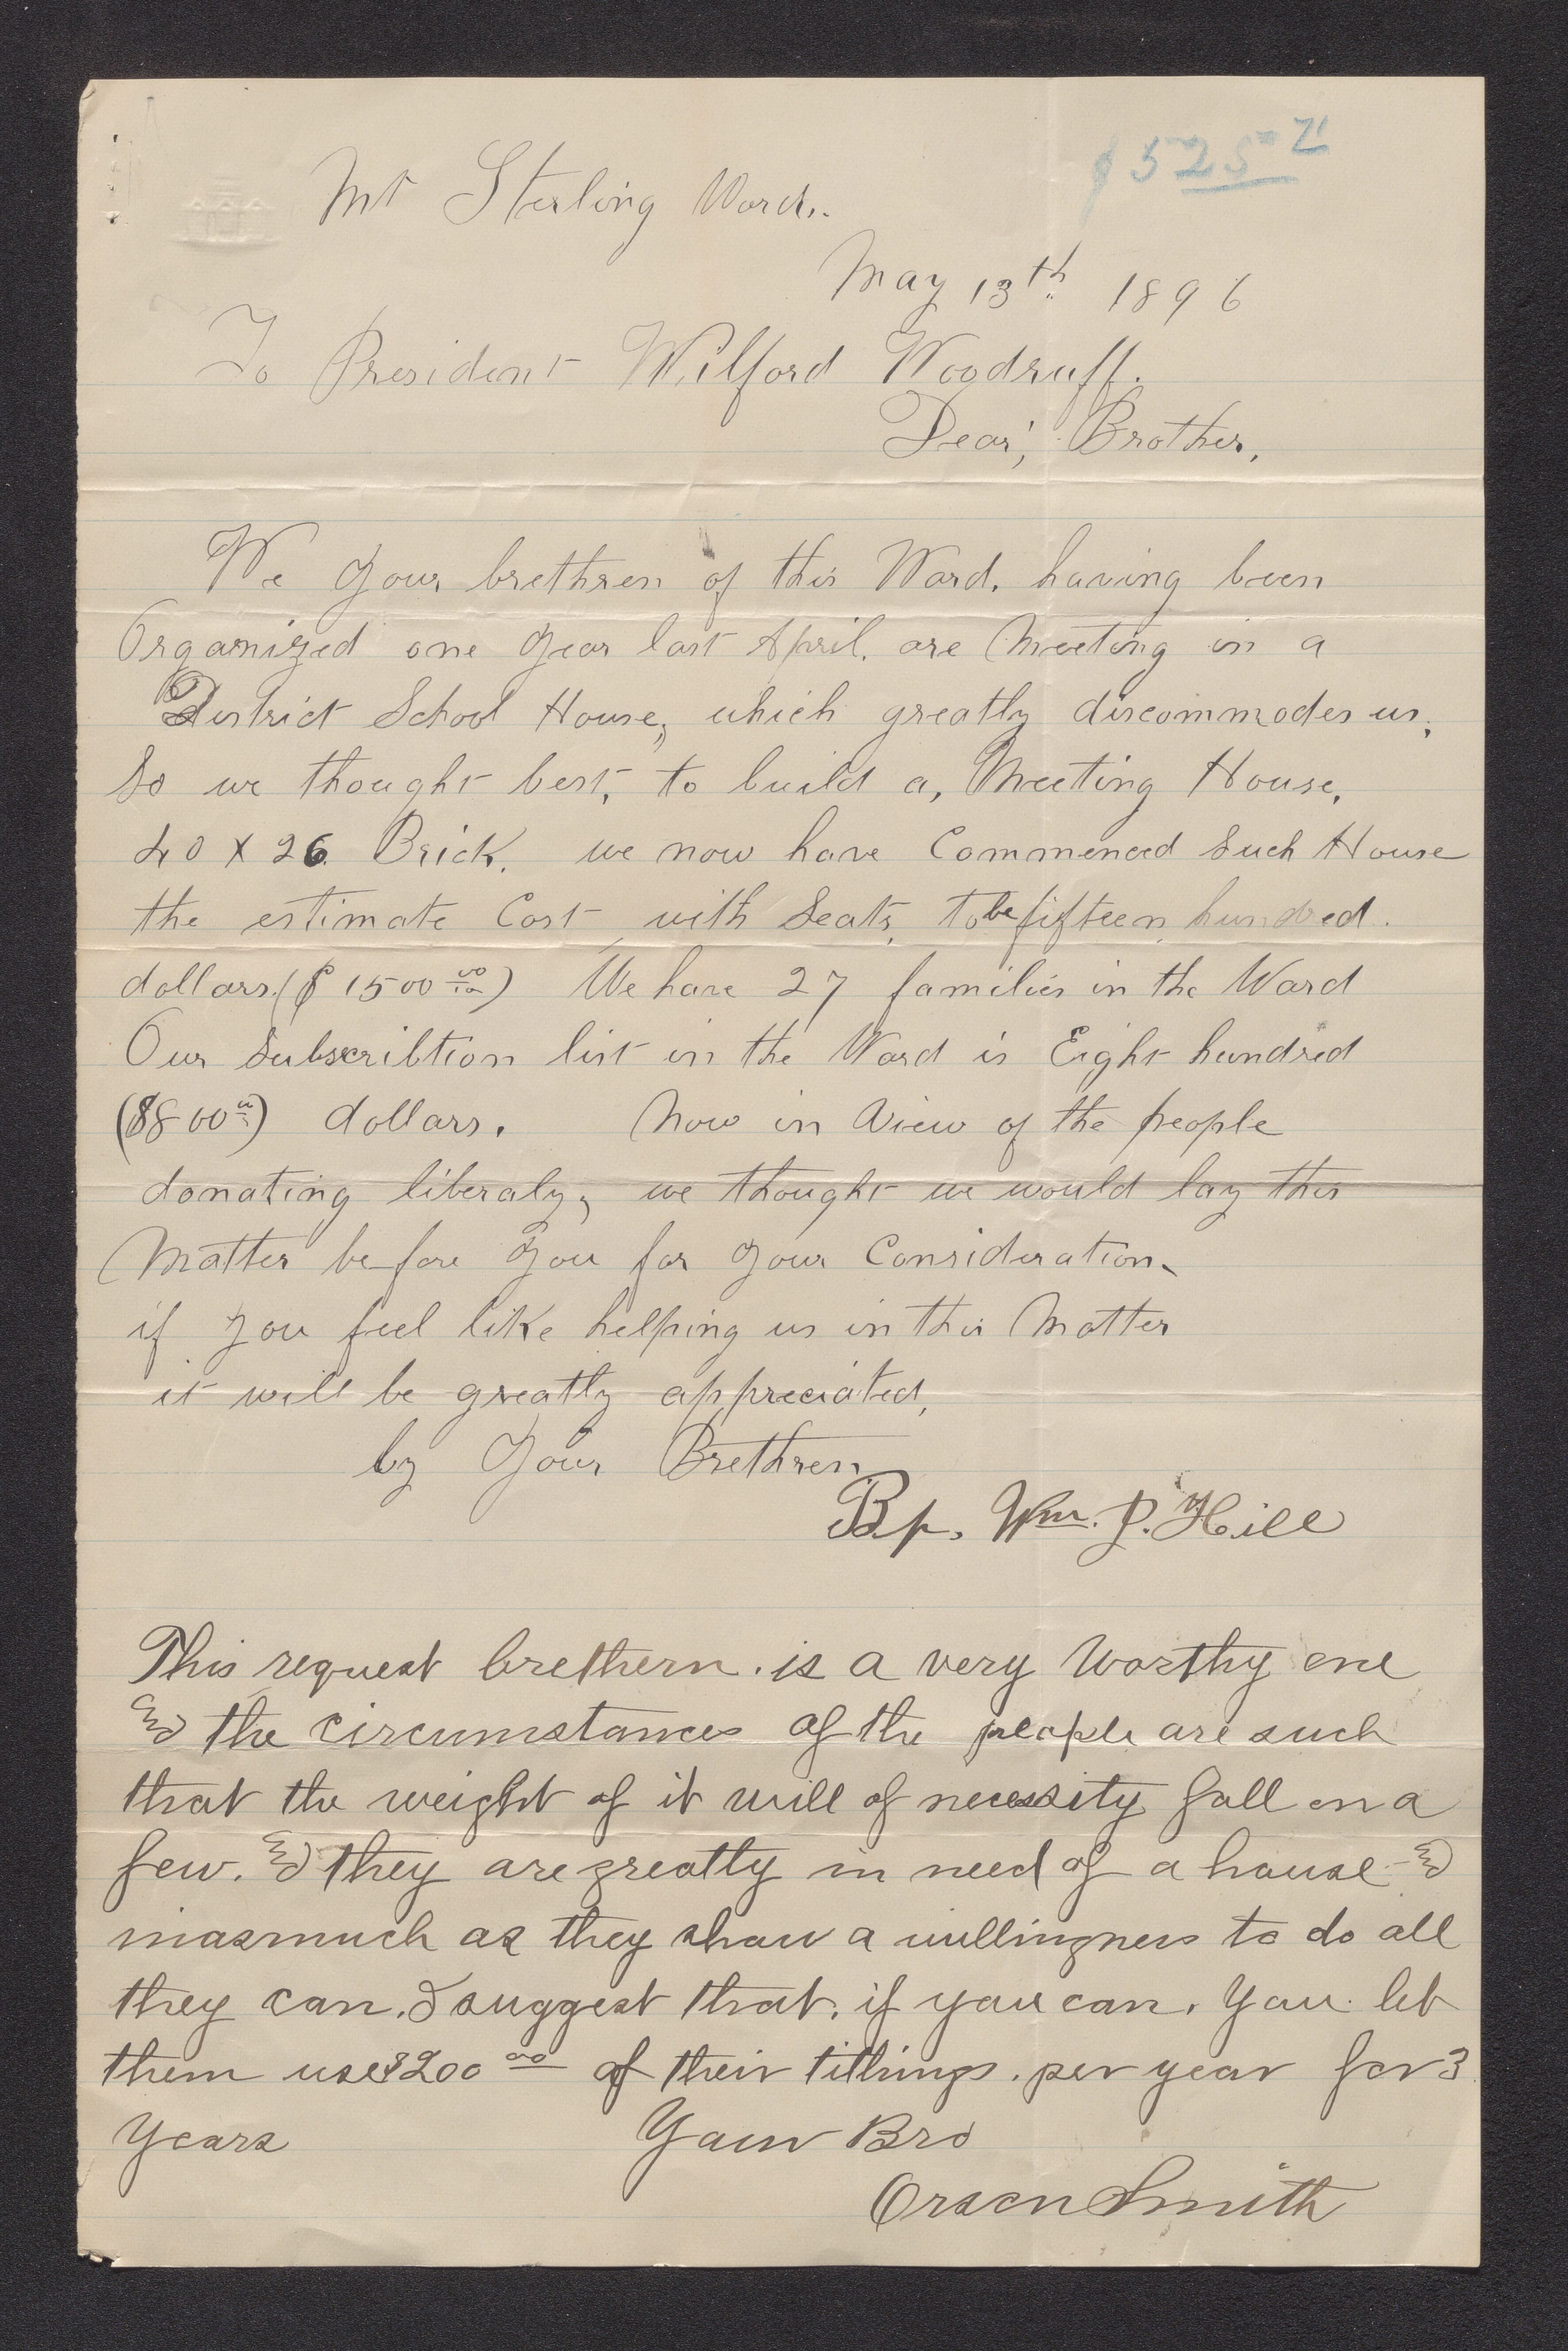 $525
Mt Sterling Ward.
May 13th 1896
To President Wilford Woodruff.
Dear, Brother.
We your brethren of this Ward, having been
Organized one year last April, are Meeting in a
District School House, which greatly discommodes us,
So we thought best, to build a, Meeting House,
40 x 26 Brick. we now have Commenced Such House
the estimate Cost with Seats, to be fifteen hundred
dollars ($1500 00/100) We have 27 families in the Ward
Our Subscribtion list in the Ward is Eight hundred
($800 00) dollars. Now in View of the people
donating liberaly, we thought we would lay this
Matter before you for your Consideration.
if you feel like helping us in this Matter
it will be greatly appreciated,
by your Brethren
Bp. Wm. P. Hill
This request brethern. is a very worthy one
& the circumstances of the people are such
that the weight of it will of necessity fall on a
few. & they are greatly in need of a house &
inasmuch as they show a willingness to do all
they can. I suggest that, if you can. you let
them use $200 00 of their tithings. per year for 3
years Your Bro
Orson Smith